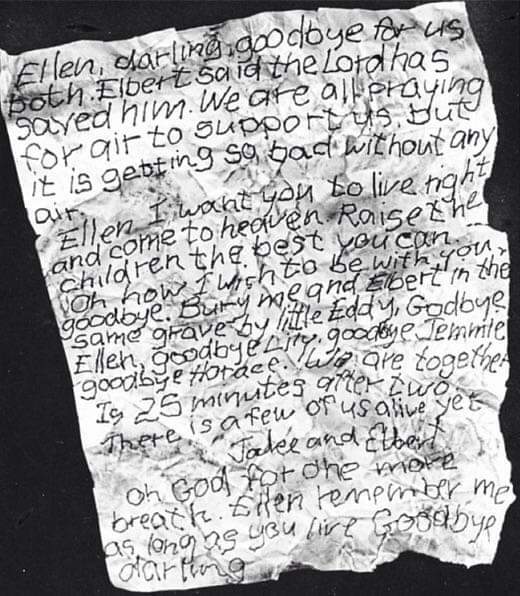 Ellen, darling, goodbye for us
both. Elbert said the Lord has
saved him. We are all praying
for air to support us, but
it is getting so bad without any
air.
Ellen I want you to live right
and come to heaven. Raise the
children the best you can.
Oh how I wish to be with you,
goodbye. Bury me and Elbert in the
same grave by little Eddy, Godbye
Ellen, goodbye Lily, goodbye Jemmie
goodbye Horace. We are together
Is 25 minutes after two
There is a few of us alive yet
Jake and Elbert
Oh God for one more
breath. Ellen remember me
as long as you live Goodbye
darling